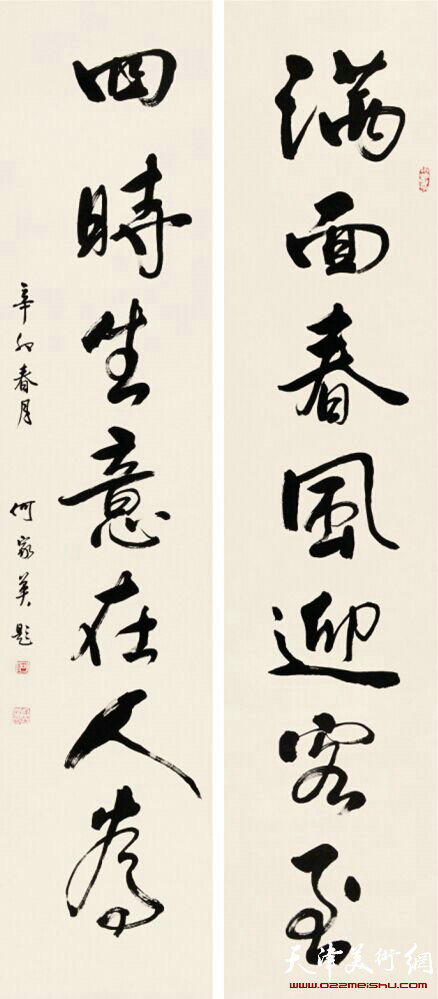 满面春風迎客至
四時生意在人為
辛卯春月 何家英題
天津美術網
www.022meishu.com